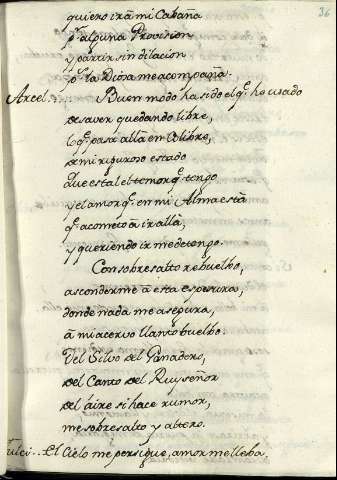 36
quiero ir à mi Cabaña
pr. alguna Provision
y partir sin dilacion
ps. la Diosa me acompaña.
Arcel. Buen modo ha sido el q.e ho usado
de saver quedando libre,
lo q.e pasa allà en Colibre,
de mi riguroso estado
Que es tal el temor q.e tengo
y el amor q.e en mi Alma està
q.e acometo à ir allà,
y queriendo ir me detengo.
Con sobresalto rebuelbo,
asconderme à esta espesura,
donde nada me asegura,
à mi acervo llanto buelbo.
Del Silvo del Ganadero,
del Canto del Ruyseñor
del áire si hace rumor,
me sobresalto y altero.
Dulci.. El Cielo me persigue, amor me lleba.